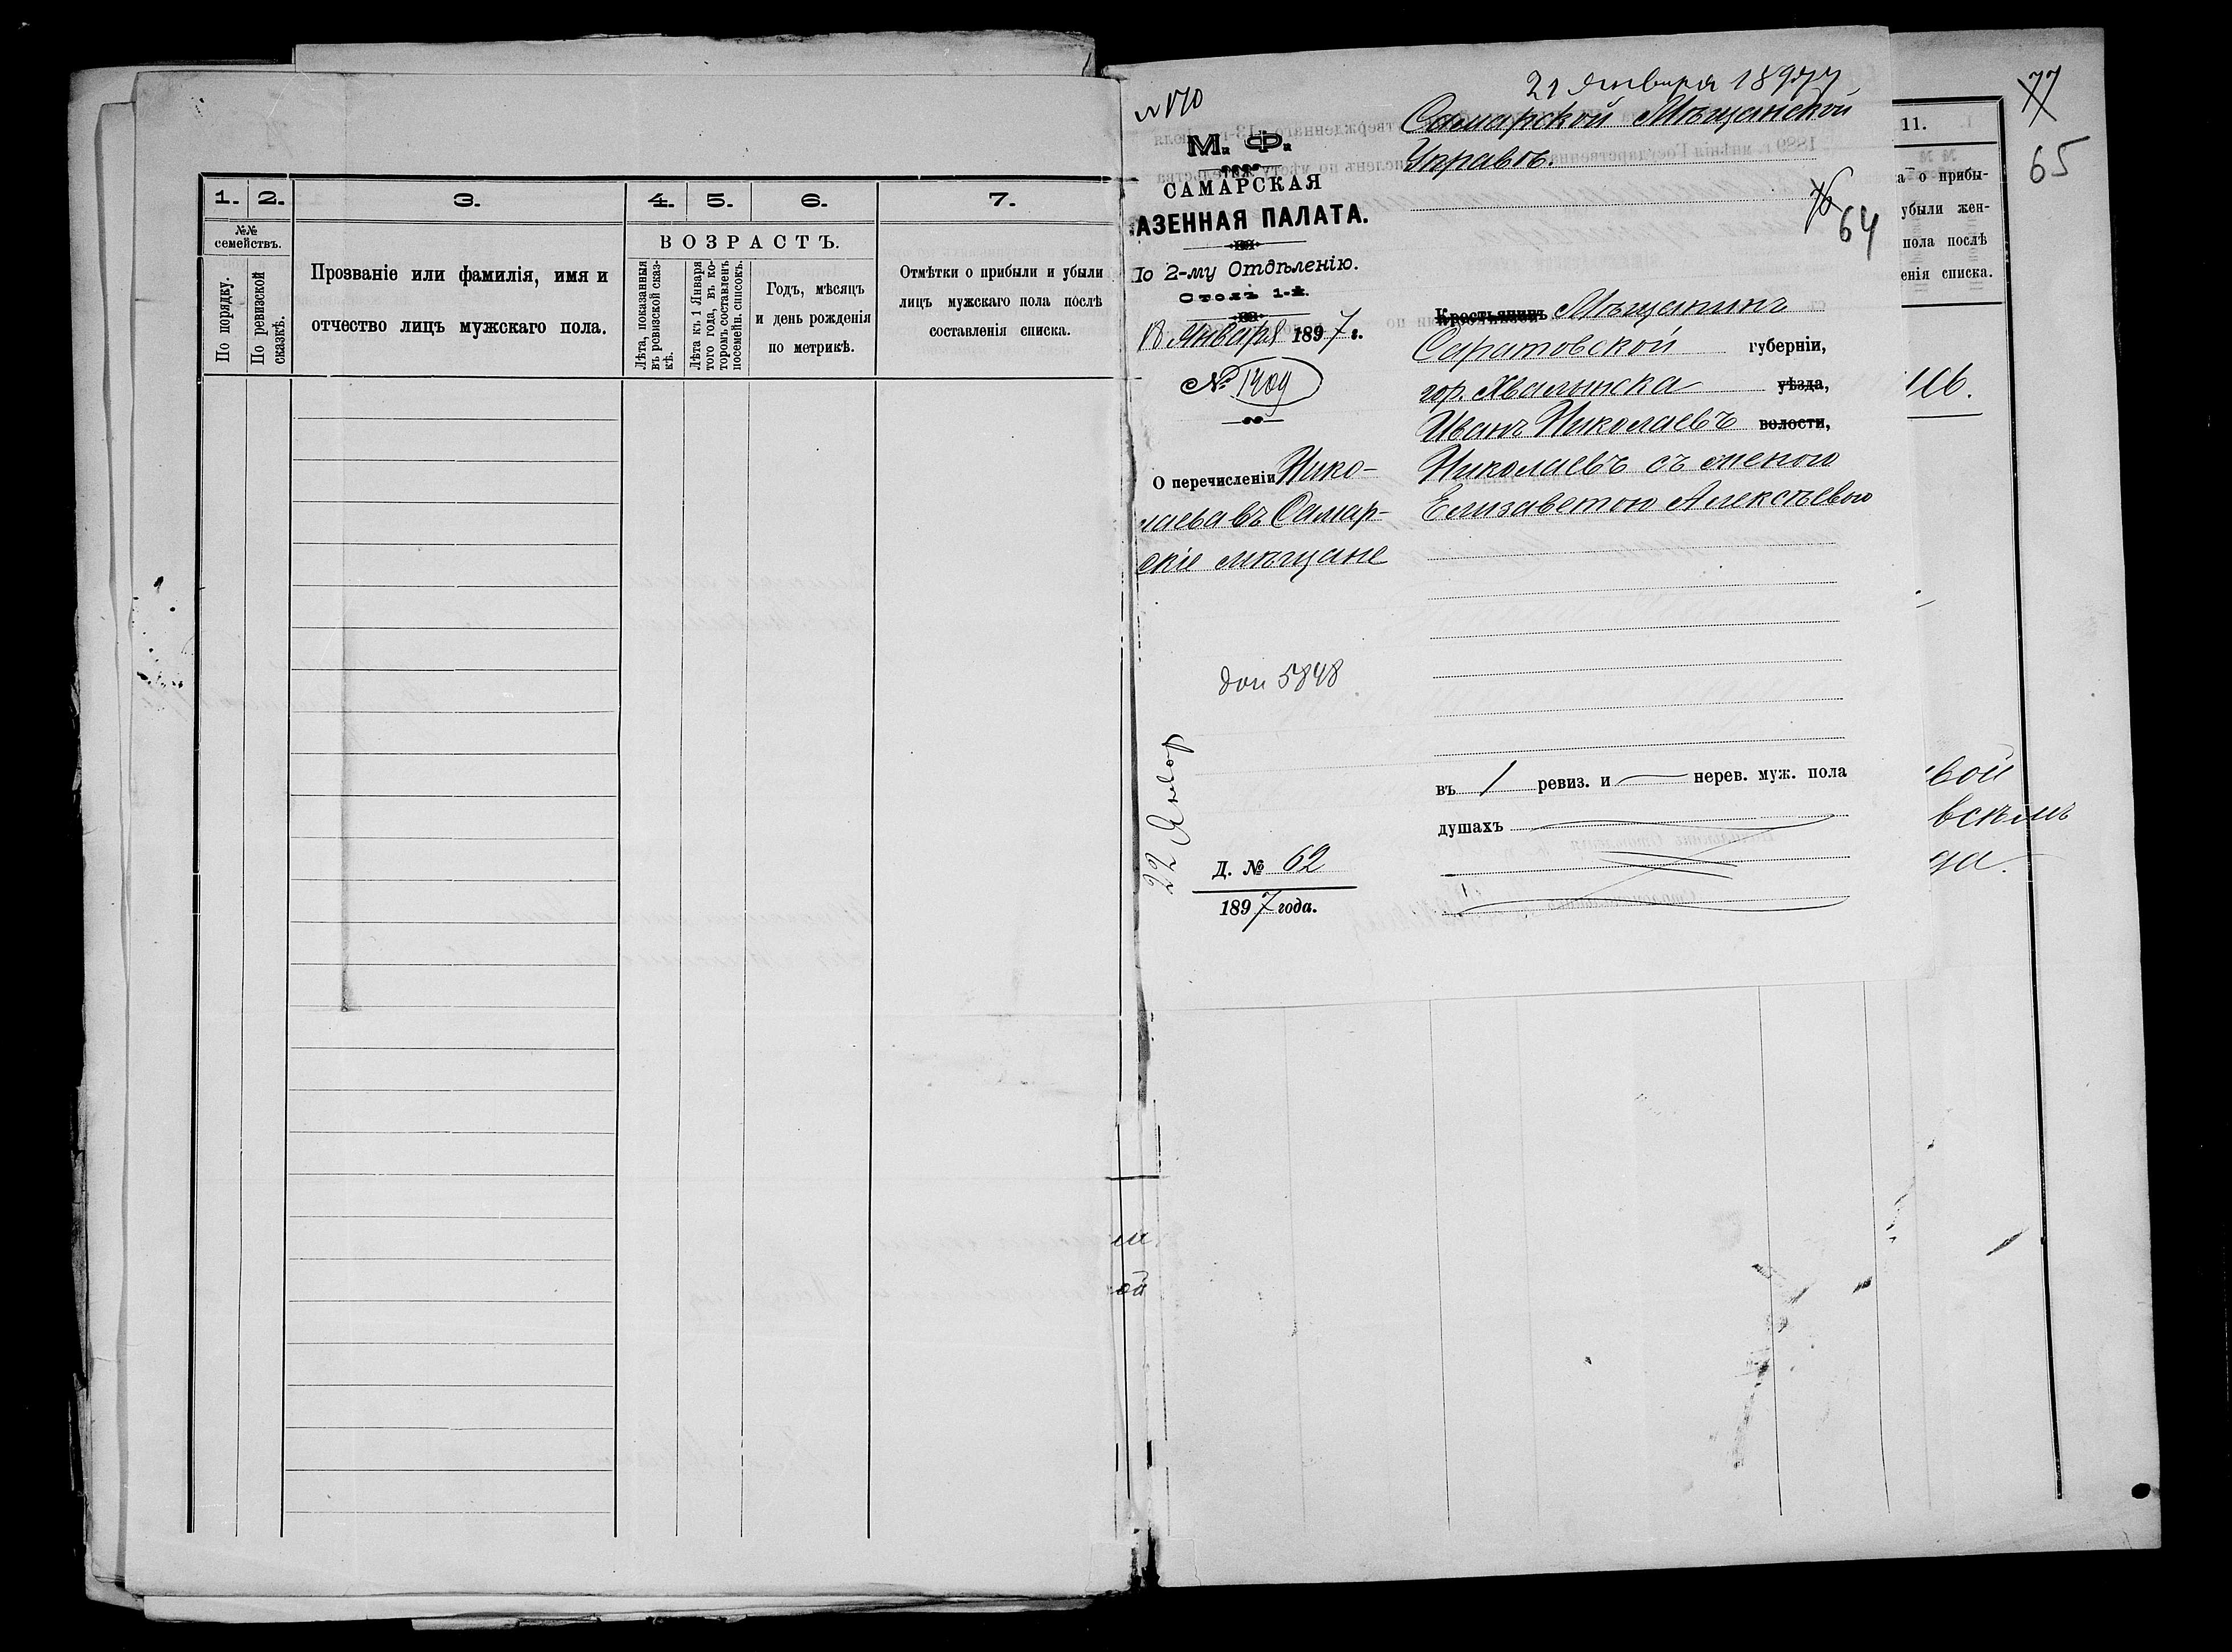 1. 2. 3. 4. 5. 6. 7.
№№ семействъ.
По порядку.
По ревизской сказкѣ.
Прозваніе или фамилія, имя и
отчество лицъ мужскаго пола.
ВОЗРАСТЪ.
Лѣта, показанныя
въ ревизской сказ-
кѣ.
Лѣта къ 1 Января
того года, въ ко-
торомъ составленъ
посемейн. списокъ.
Годъ, мѣсяцъ
и день рожденія
по метрикѣ.
Отмѣтки о прибыли и убыли
лицъ мужскаго пола послѣ
составленія списка.
ой
М. Ф.
САМАРСКАЯ
АЗЕННАЯ ПАЛАТА.
По 2-му Отдѣленію.
Столъ 1-й.
18 Января 1897 г.
№ 1409
О перечисленіи Нико-
лаева въ Самар-
скіе мѣщане
доп 5848
22 Январ
Д. № 62
1897 года.
21 Января 1897 г
Самарской Мѣщанской
Управѣ.
76
64
Крестьянинъ Мѣщанинъ
Саратовской губерніи,
гор. Хвалынска уѣзда,
Иванъ Николаевъ волости,
Николаевъ съ женою
Елизаветою Алексѣевою
въ 1 ревиз. и — нерев. муж. пола
душахъ
77
65
11.
а о прибы-
убыли жен-
пола послѣ
енія списка.
вой
всѣмъ
да.